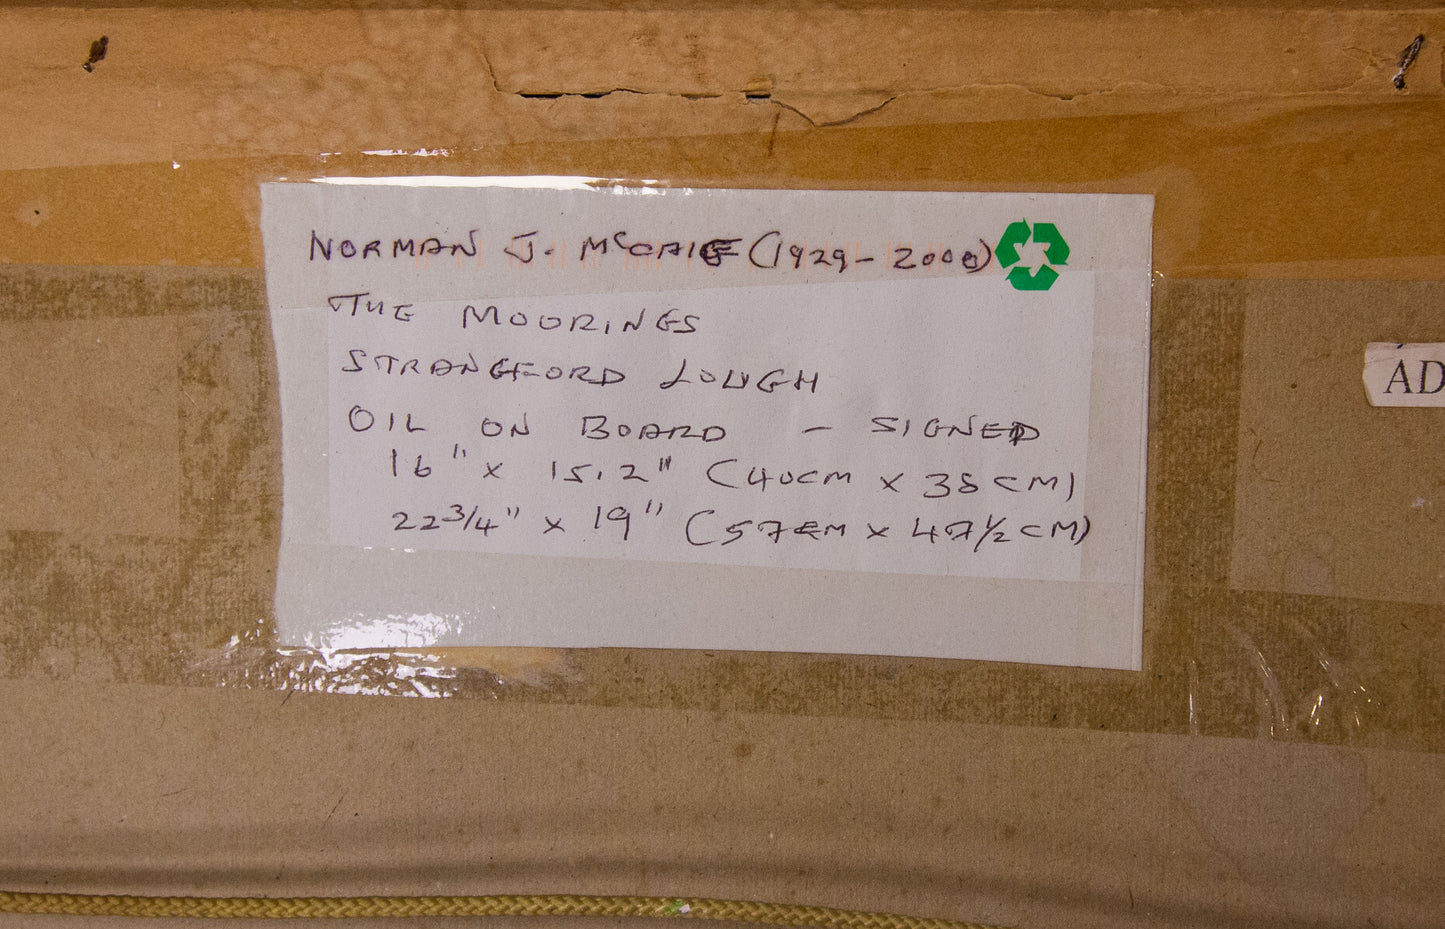 NORMAN J. McCAIG (1929-2000)
THE MOORINGS
STRANGFORD LOUGH
OIL ON BOARD - SIGNED
16" x 15.2" (40CM x 38CM)
22 3/4" x 19" (57CM x 47 1/2 CM)
AD